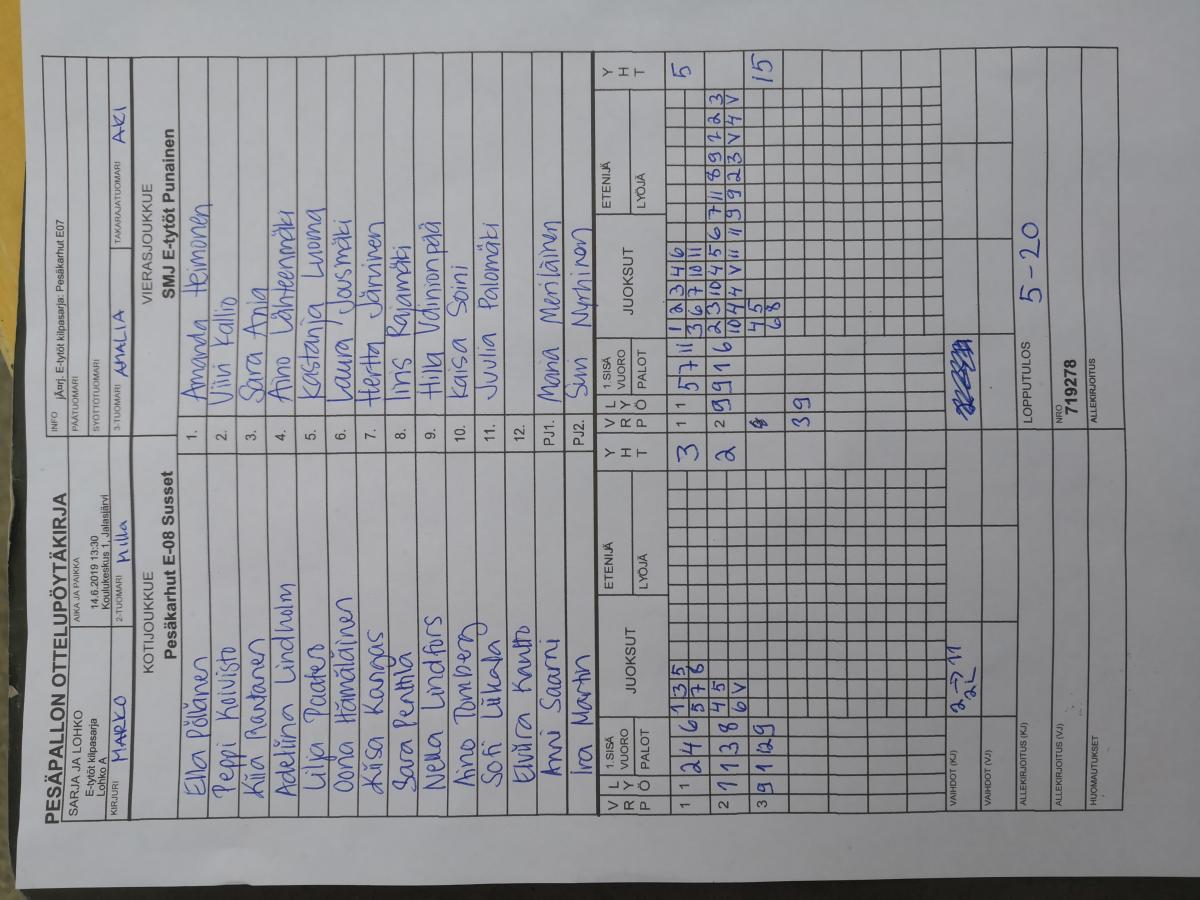 PESÄPALLON OTTELUPÖYTÄKIRJA
SARJA JA LOHKO
E-tytöt kilpasarja
Lohko A
AIKA JA PAIKKA
14.6.2019 13:30
Koulukeskus 1, Jalasjärvi
INFO jÃ¤rj. E-tytöt kilpasarja: Pesäkarhut E07
PÄÄTUOMARI
SYÖTTÖTUOMARI
KIRJURI MARKO
2-TUOMARI Milla
3-TUOMARI AMALIA
TAKARAJATUOMARI AKI
KOTIJOUKKUE
Pesäkarhut E-08 Susset
VIERASJOUKKUE
SMJ E-tytöt Punainen
Ella Pöllänen 1. Amanda Heimonen
Peppi Koivisto 2. Viivi Kallio
Kiia Rantanen 3. Sara Ania
Adeliina Lindholm 4. Aino Lähteenmäki
Lilja Paatero 5. Kastanja Luoma
Oona Hämäläinen 6. Laura Jousmäki
Kiisa Kangas 7. Hertta Järvinen
Saara Penttilä 8. Iris Rajamäki
Nella Lindfors 9. Hilla Vainionpää
Aino Tomberg 10. Kaisa Soini
Sofi Liikala 11. Juulia Palomäki
Elviira Kautto 12.
Anni Saarni PJ1. Maria Meriläinen
Ira Martin PJ2. Suvi Nyrhinen
V R P L Y Ö 1.SISÄ VUORO PALOT JUOKSUT ETENIJÄ LYÖJÄ Y H T V R P L Y Ö 1.SISÄ VUORO PALOT JUOKSUT ETENIJÄ LYÖJÄ Y H T
1 1 2 4 6 1 3 5 3 1 1 5 7 11 1 2 3 4 6 5
5 7 6 3 6 7 10 11
2 1 1 3 8 4 5 2 2 9 9 1 6 2 3 10 4 5 6 7 11 8 9 1 2 3
6 V 10 4 4 V 11 11 9 9 2 3 V 4 V
3 9 1 12 9 4 5 15
6 8
3 9
VAIHDOT (KJ) 2 → 11
2L
VAIHDOT (VJ)
ALLEKIRJOITUS (KJ) LOPPUTULOS 5 - 20
ALLEKIRJOITUS (VJ) NRO
719278
HUOMAUTUKSET ALLEKIRJOITUS